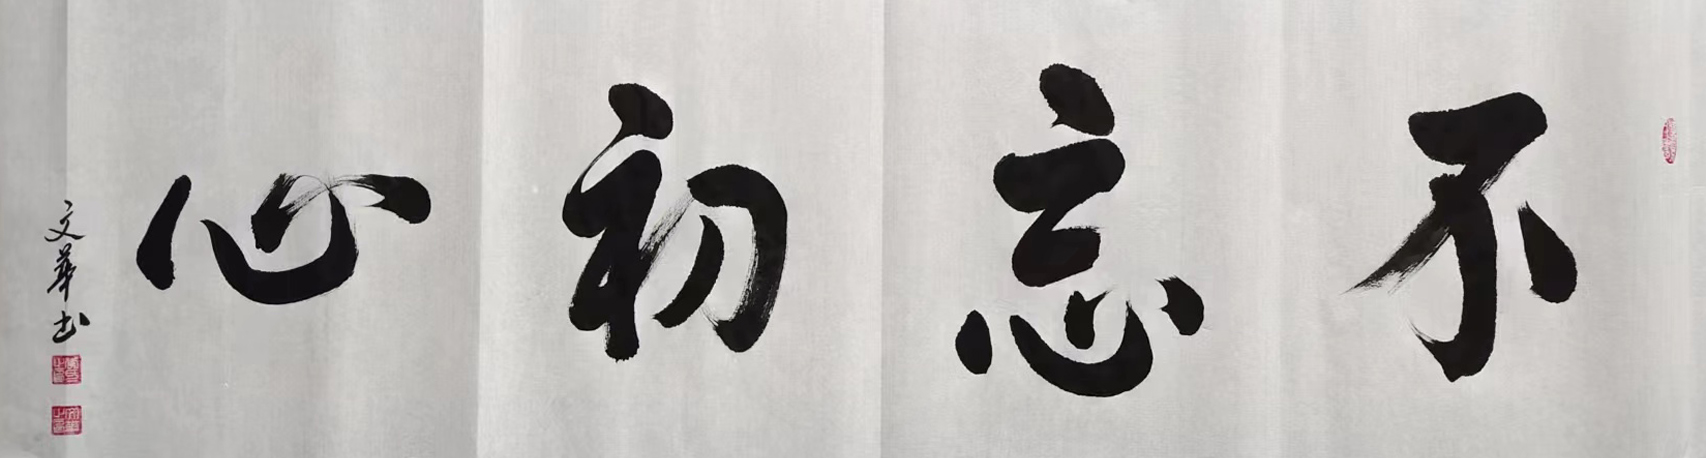 不忘初心
文華书